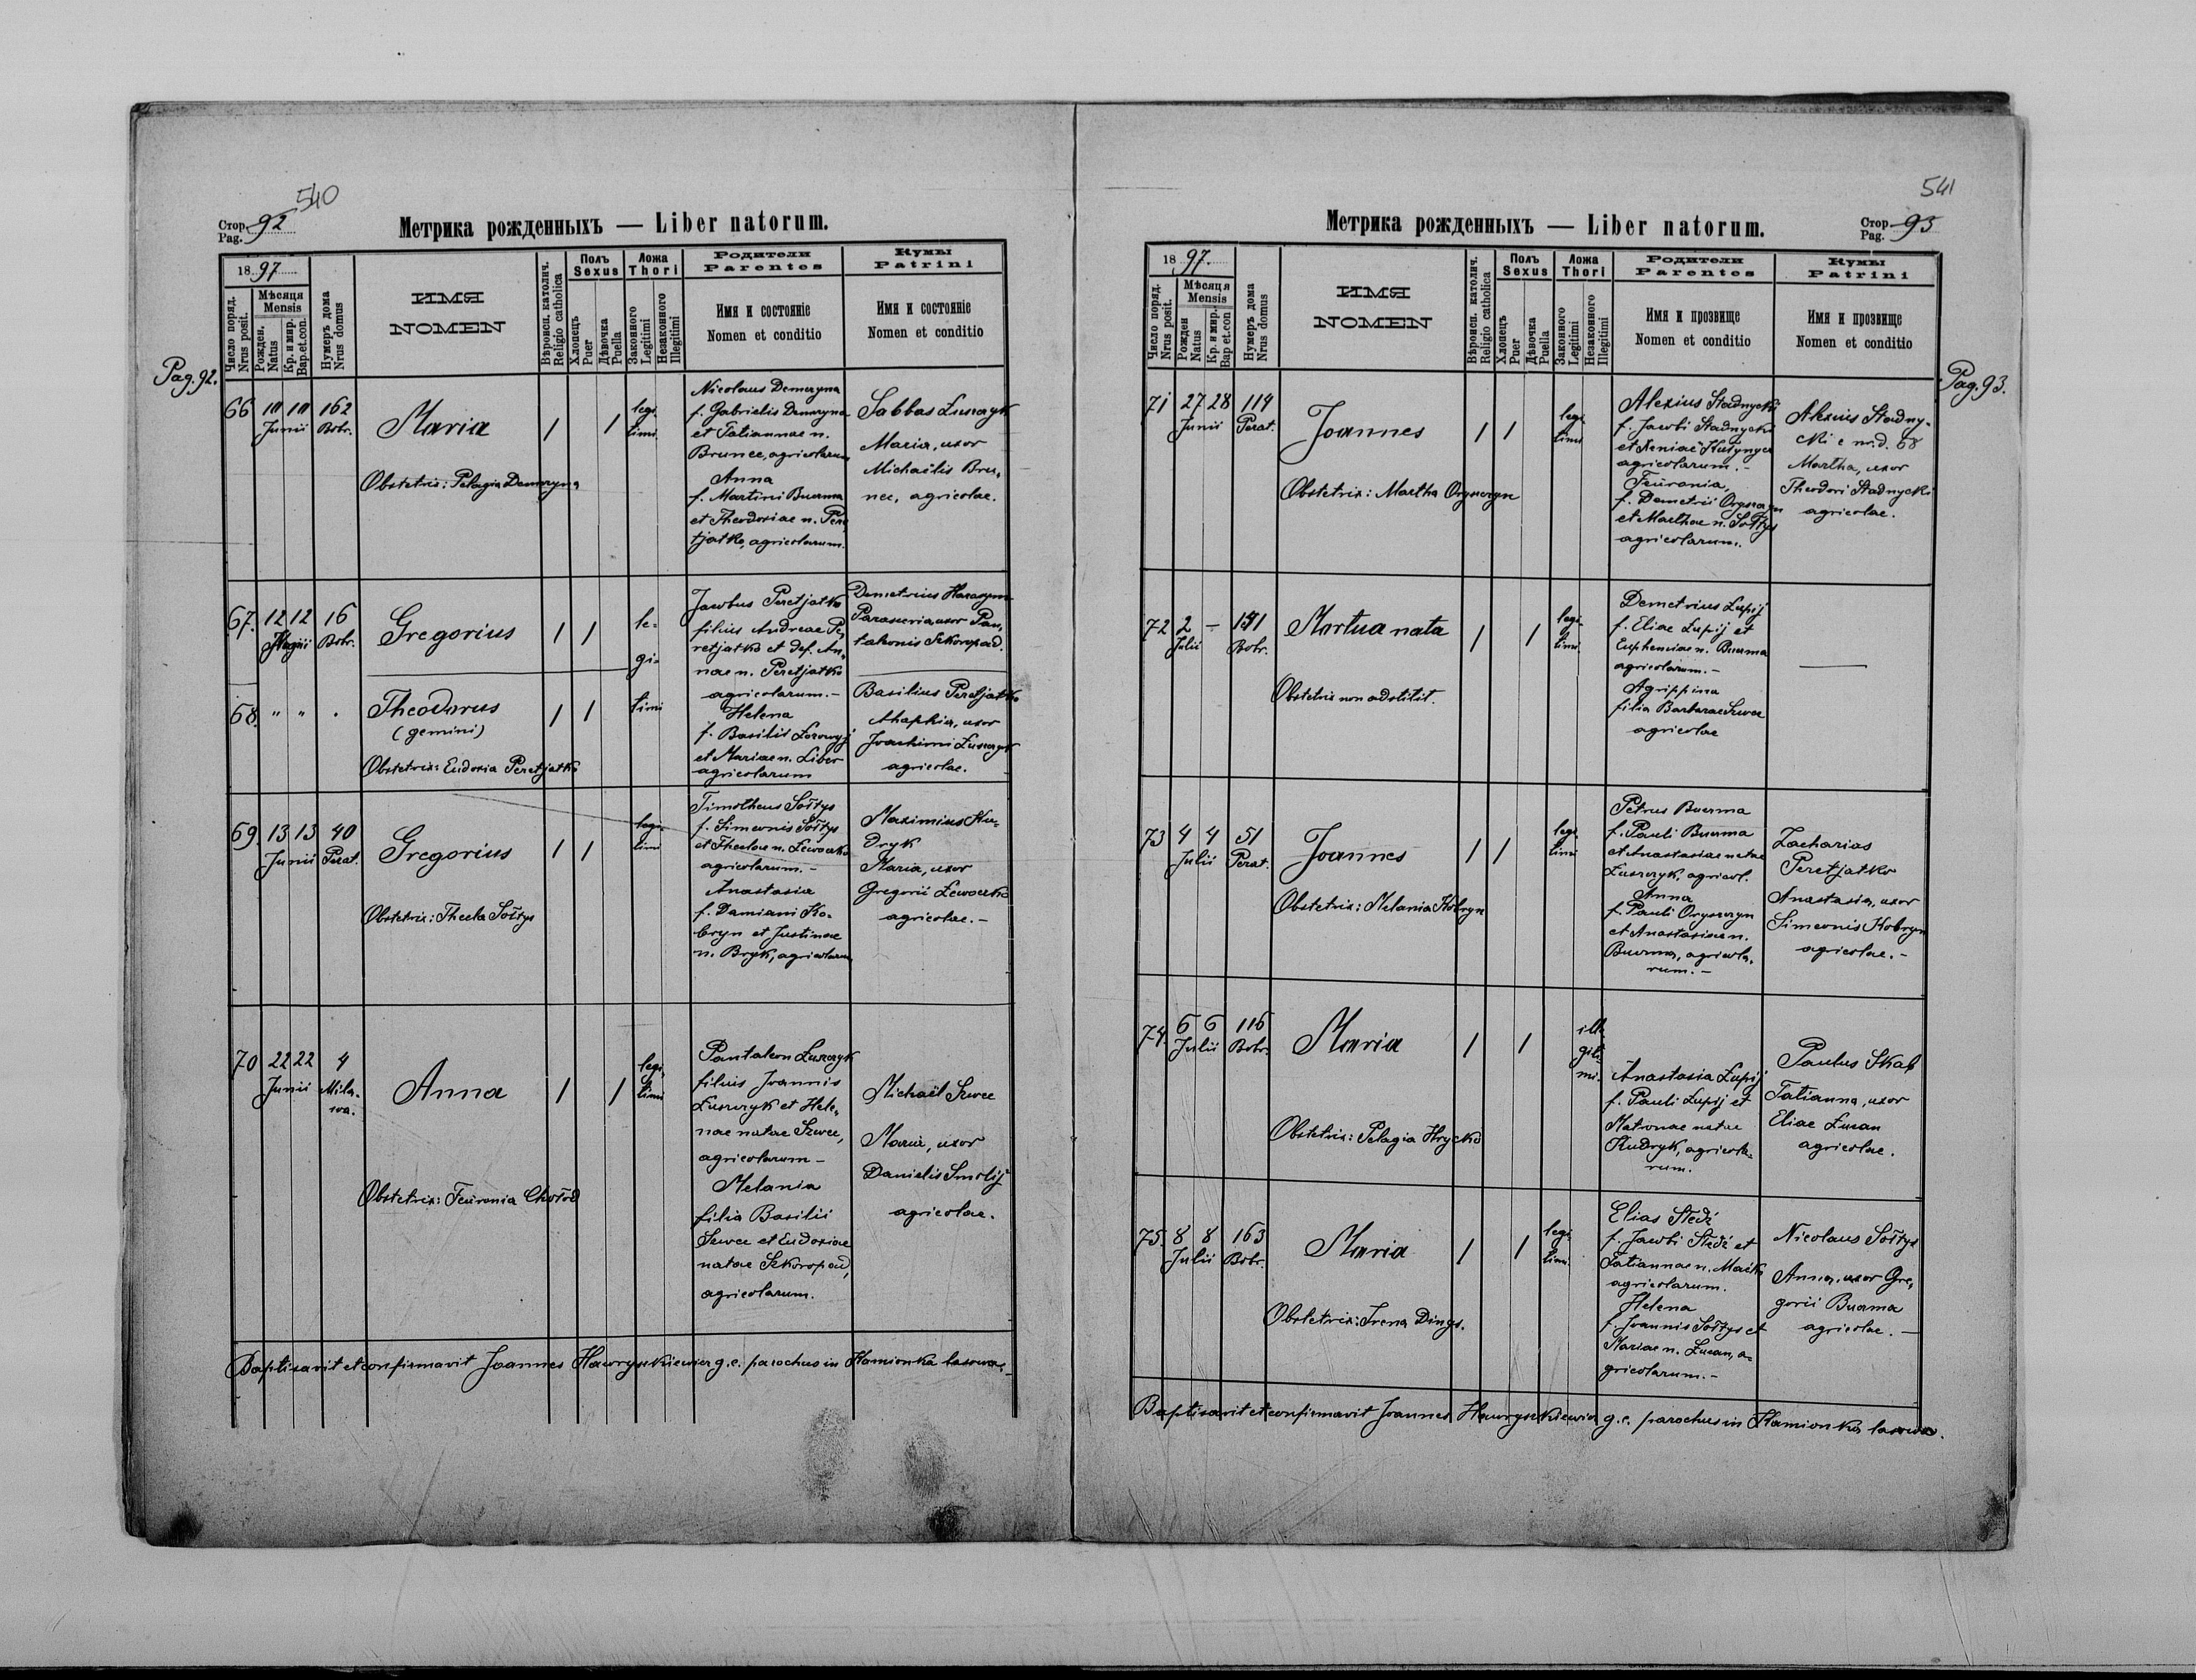 540
Стор. Pag. 92
Метрика рожденныхъ — Liber natorum.
1897
Число поряд. Nrus posit.
Мѣсяця Mensis
Рожден. Natus
Кр. и мир. Bap. et. con.
Нумеръ дома Nrus domus
ИМЯ
NOMEN
Вѣроисп. католич. Religio catholica
Полъ Sexus
Хлопецъ Puer
Дѣвочка Puella
Ложа Thori
Законного Legitimi
Незаконного Illegitimi
Родители
Parentes
Имя и состояніе
Nomen et conditio
Кумы
Patrini
Имя и состояніе
Nomen et conditio
Pag. 92.
66 10 10 162
Junii Bobr.
Maria
1 1
legi-
timi
Obstetrix: Pelagia Demczyna
Nicolaus Demczyna
f. Gabrielis Demczyna
et Tatiannae n.
Brunec, agricolarum
Anna
f. Martini Buczma
et Theodosiae n. Pere
tjatko, agricolarum.
Sabbas Łuszczyk
Maria, uxor
Michaëlis Bru-
nec, agricolae.
67. 12 12 16
Bobr.
Gregorius
1 1
le-
gi-
timi
68. " " .
Theodorus
(gemini)
1 1
Obstetrix: Eudoxia Peretjatko
Jacobus Peretjatko
filius Andreae Pe-
retjatko et def. An-
nae n. Peretjatko
agricolarum. -
Helena
f. Basilii Łozowyj
et Mariae n. Liber
agricolarum
Demetrius Harasym
Parascevia, uxor Pan-
taleonis Szkoropad.
Basilius Peretjatko
Ahaphia, uxor
Joachimi Łuszczyk
agricolae.
69. 13 13 40
Junii Perat.
Gregorius
1 1
legi-
timi
Obstetrix: Thecla Sołtys
Timotheus Sołtys
f. Simeonis Sołtys
et Theclae n. Lewoczko
agricolarum. -
Anastasia
f. Damiani Ko-
bryn et Justinae
n. Bryk, agricolarum
Maximius Ku-
dryk
Maria, uxor
Gregorii Lewoczko
agricolae. -
70 22 22 4
Junii Mila-
wa.
Anna
1 1
legi-
timi
Obstetrix: Feuronia Chołod
Pantaleon Łuszczyk
filius Joannis
Łuszczyk et Hele-
nae natae Szwec,
agricolarum -
Melania
filia Basilii
Szwec et Eudoxiae
natae Szkoropad,
agricolarum.
Michaël Szwec
Maria, uxor
Danielis Smolij
agricolae.
Baptisavit et confirmavit Joannes Hawryszkiewicz g. c. parochus in Kamionka lasowa. -
541
Метрика рожденныхъ — Liber natorum.
Стор. Pag. 93
1897.
Число поряд. Nrus posit.
Мѣсяця Mensis
Рожден Natus
Кр. и мир. Bap et. con
Нумеръ дома Nrus domus
ИМЯ
NOMEN
Вѣроисп. католич. Religio catholica
Полъ Sexus
Хлопецъ Puer
Дѣвочка Puella
Ложа Thori
Законного Legitimi
Незаконного Illegitimi
Родители
Parentes
Имя и прозвище
Nomen et conditio
Кумы
Patrini
Имя и прозвище
Nomen et conditio
Pag. 93.
71 27 28 114
Junii Perat.
Joannes
1 1
legi-
timi
Obstetrix: Martha Oryszczyn
Alexius Stadnycki
f. Jacobi Stadnycki
et Xeniae
agricolarum. -
Feuronia,
f. Demetrii Oryszczyn
et Marthae n. Sołtys
agricolarum.
Alexius Stadny-
cki e nr. d. 68
Martha, uxor
Theodori Stadnycki
agricolae.
72 2 - 131
Julii Bobr.
Mortua nata
1 1
legi-
timi
Obstetrix non adstitit.
Demetrius Łupij
f. Eliae Łupij et
Euphemiae n. Buczma
agricolarum. -
Agrippina
filia Barbarae Szwec
agricolae
73 4 4 51
Julii Perat.
Joannes
1 1
legi-
timi
Obstetrix: Melania Kobryn
Petrus Buczma
f. Pauli Buczma
et Anastasiae natae
Łuszczyk, agricol.
Anna
f. Pauli Oryszczyn
et Anastasiae n.
Buczma, agricola-
rum. -
Zacharias
Peretjatko
Anastasia, uxor
Simeonis Kobryn
agricolae. -
74. 6 6 116
Julii Bobr.
Maria
1 1
ille-
giti-
mi.
Obstetrix: Pelagia Hrycko
Anastasia Łupij
f. Pauli Łupij et
Matronae natae
Kudryk, agricola-
rum.
Paulus Skab
Tatianna, uxor
Eliae Łucan
agricolae.
75. 8 8 163
Julii Bobr.
Maria
1 1
legi-
timi.
Obstetrix: Irena Dinys.
Elias Stedź
f. Jacobi Stedź et
Tatiannae n. Maćko
agricolarum.
Helena
f. Joannis Sołtys et
Mariae n. Łucan, a-
gricolarum. -
Nicolaus Sołtys
Anna, uxor Gre-
gorii Buczma
agricolae. -
Baptisavit et confirmavit Joannes Hawryszkiewicz g. c. parochus in Kamionka lasowa.